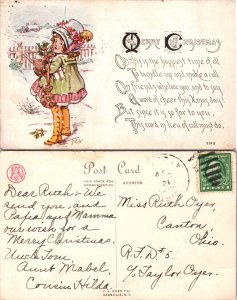 Merry Christmas
Oh this is the happiest time of all
To bundle up and make a call
On friends whom you love, and to say
A word of cheer this Xmas day!
But since it is so far to you,
This card in lieu of call must do.
Post Card
THIS SPACE FOR
COMMUNICATION
ADDRESS
Dear Ruth:- We
send you, and
Papa and Mamma
our wish for a
Merry Christmas.
Uncle Tom,
Aunt Mabel,
Cousin Hilda.
Miss Ruth Oyer,
Canton,
Ohio.
R.F.D. #5
℅ Taylor Oyer.